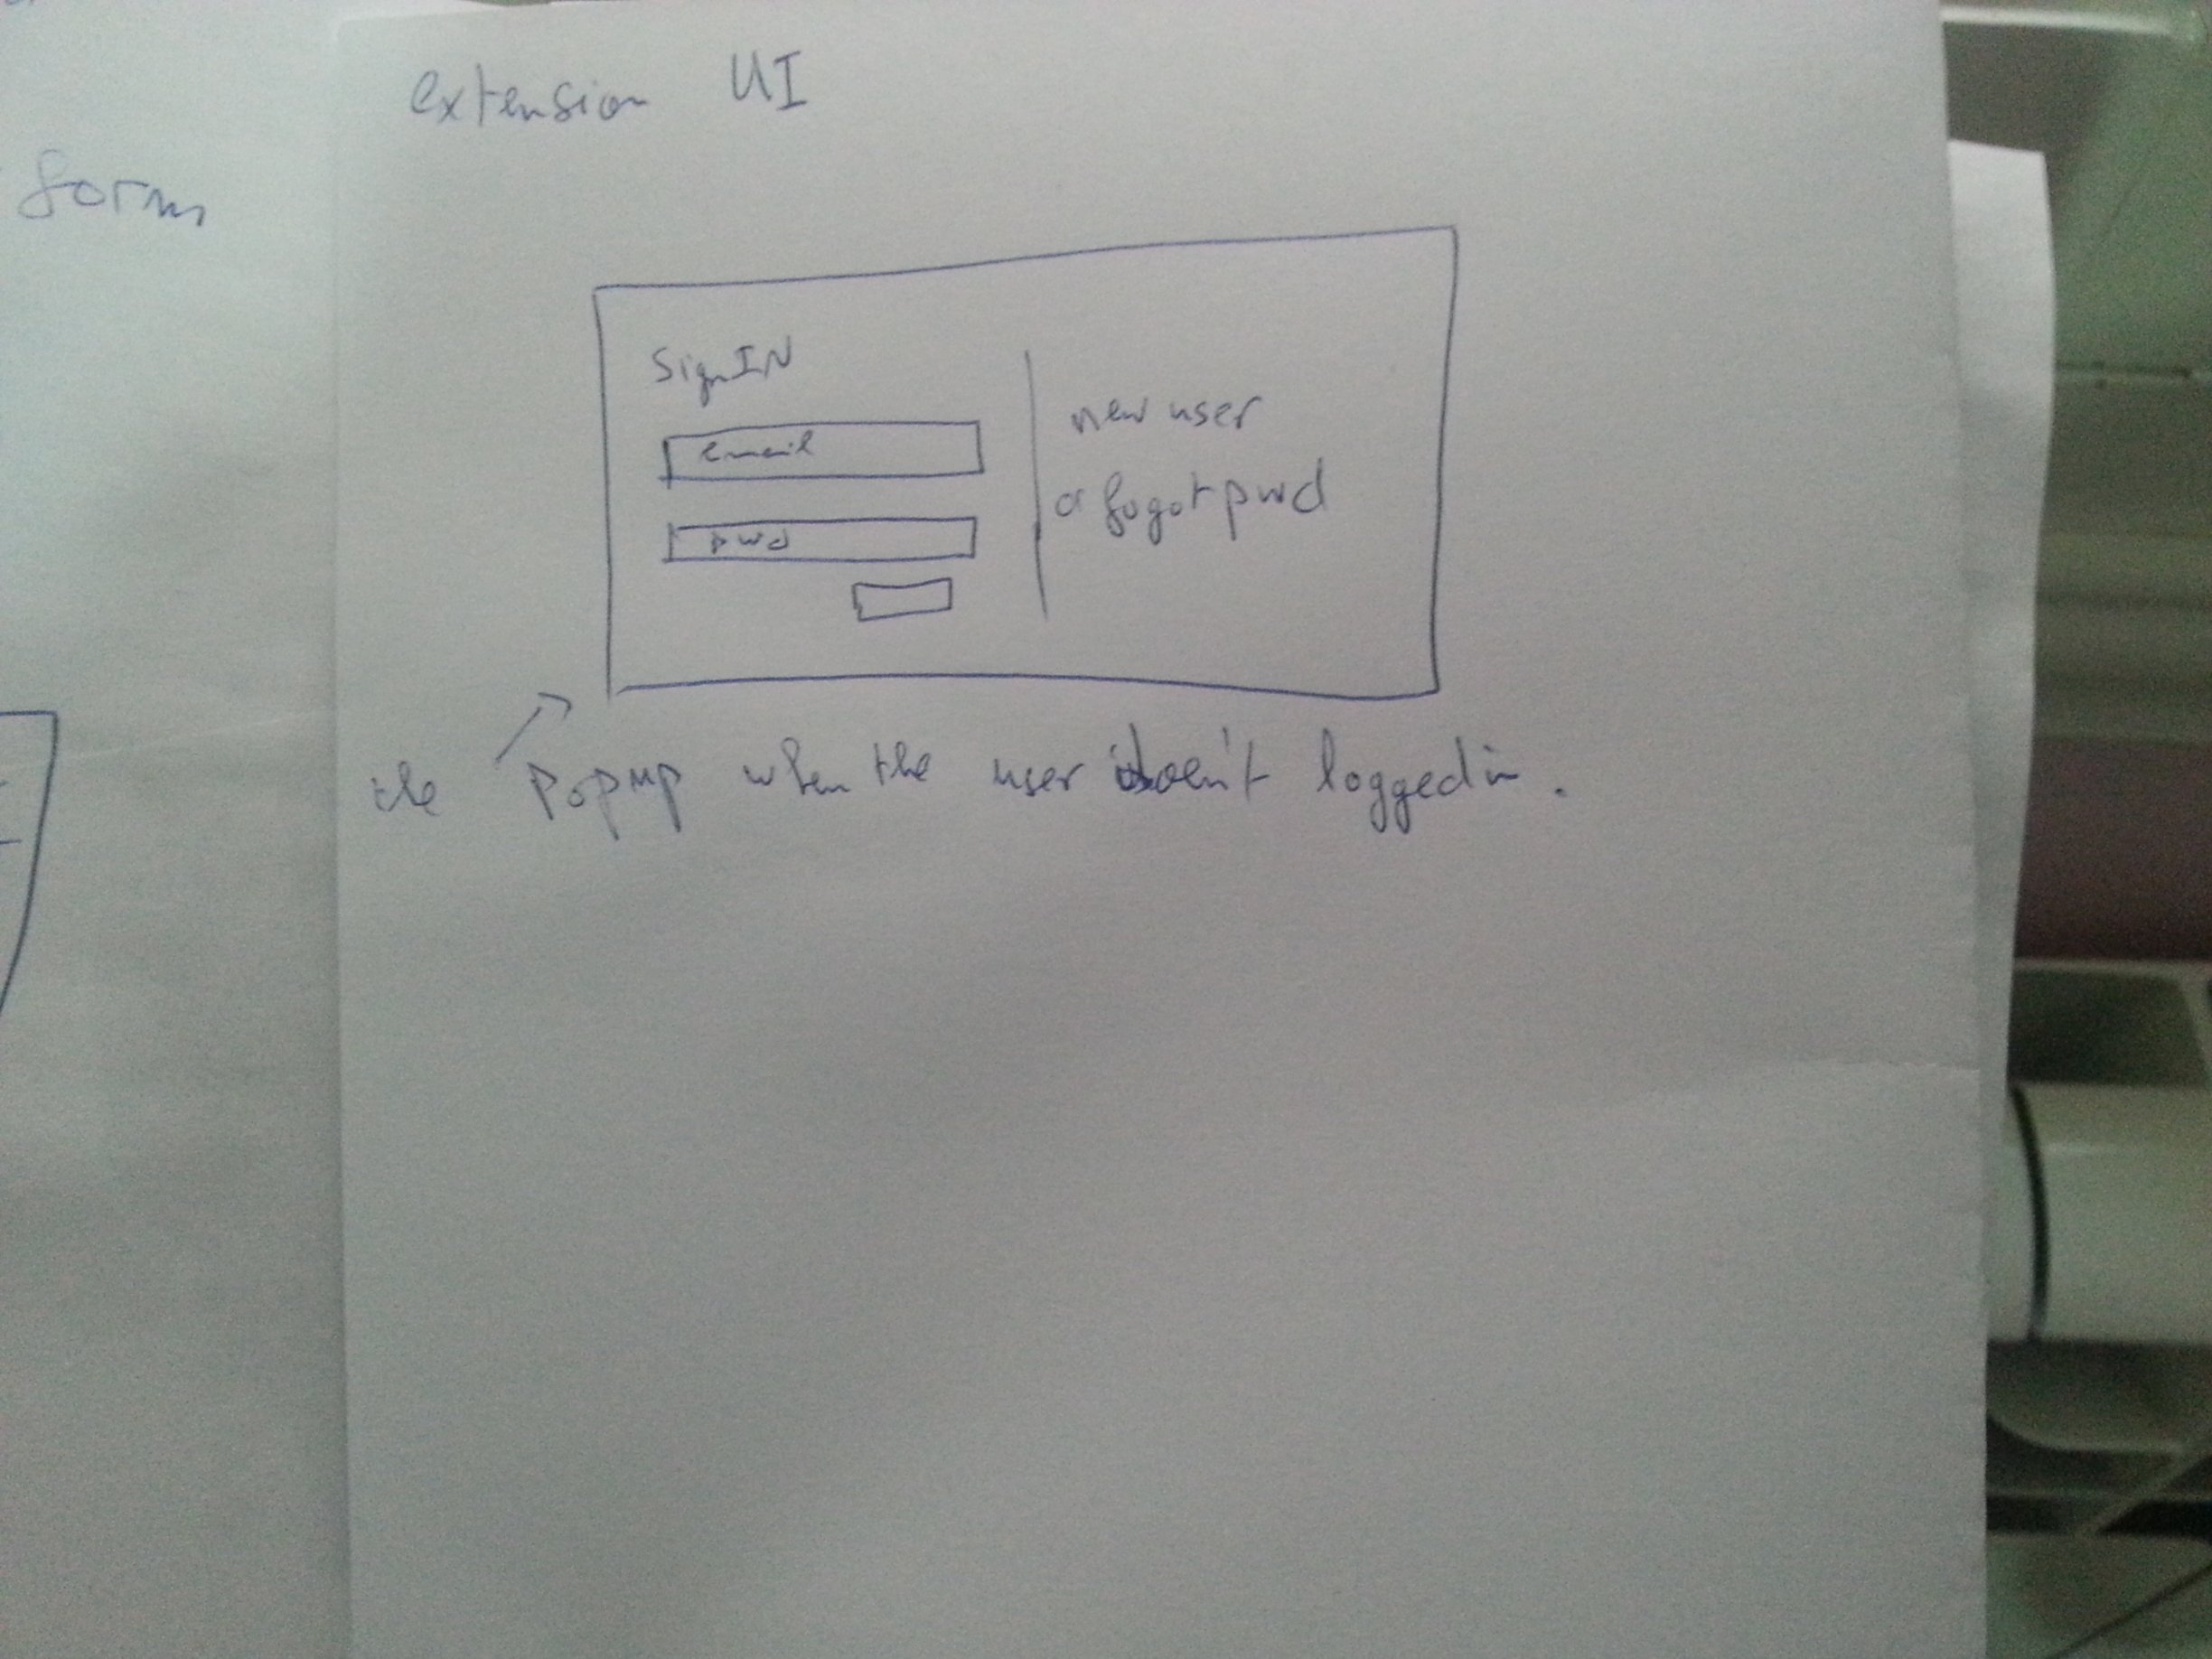 extension UI
form
SignIN
email
pwd
new user
or fogot pwd
the popup when the user doen't loggedin.